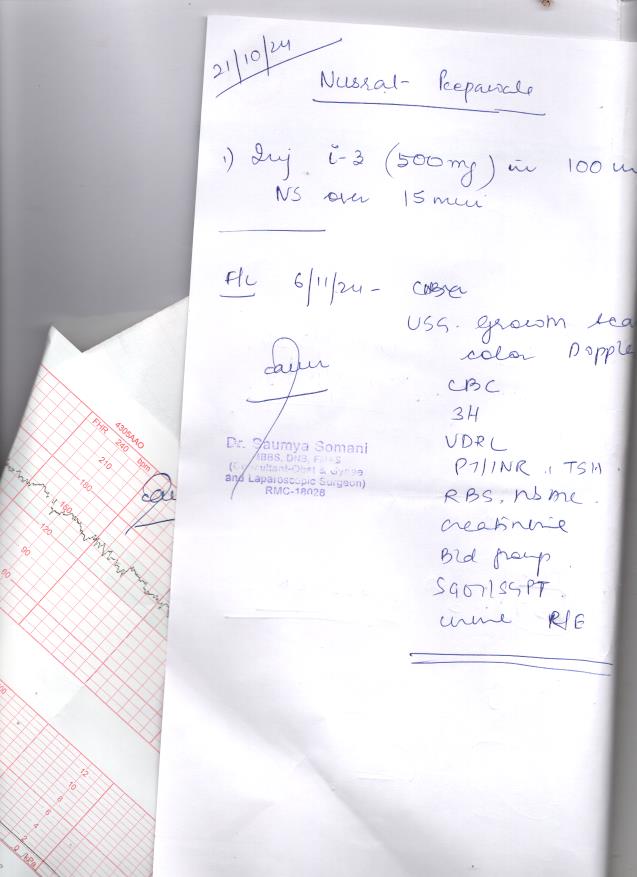 21/10/24
Nusrat
1) Inj i-3 (500mg) in 100
NS over 15 min
F/U 6/11/24 -
USG. growth
color Dopple
CBC
3H
VDRL
PT/INR, TSH
RBS,
creatinine
Bld group
SGOT/SGPT
urine R/E
Dr. Saumya Somani
MBBS, DNB,
(Consultant-Obst & Gynae
and Laparoscopic Surgeon)
RMC-18028
FHR 4305AAO
240 bpm
210
180
150
120
90
60
12
10
8
6
4
2
0 (kPa)